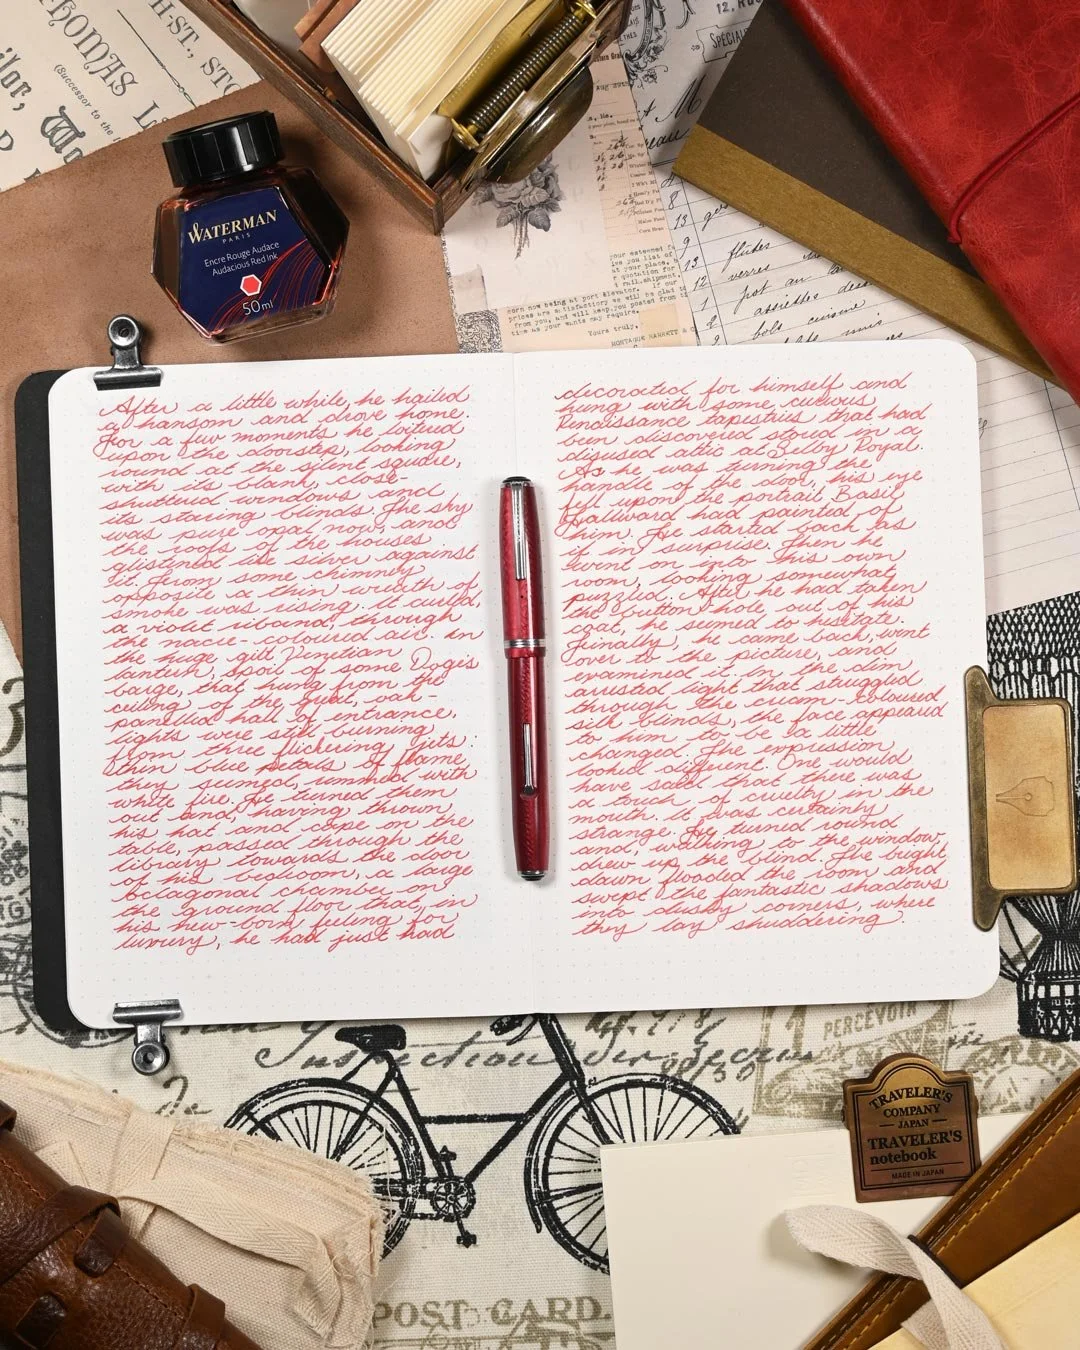 THOMAS
(Successor to the
H-ST., STO
12, Ru
SPÉCIAL
WATERMAN
PARIS
Encre Rouge Audace
Audacious Red Ink
50ml
your esteemed
corn now being at port elevator. If our
prices are satisfactory we will be glad to
from you, and will keep you posted from
time as your wants may require.
Yours truly,
MONTAGUE BARRETT & C
flûtes
verres
pot au
assiettes
bols cuisine
After a little while, he hailed
a hansom and drove home.
For a few moments he loitered
upon the doorstep, looking
round at the silent square,
with its blank, close-
shuttered windows and
its staring blinds. The sky
was pure opal now, and
the roofs of the houses
glistened like silver against
it. From some chimney
opposite a thin wreath of
smoke was rising. It curled,
a violet riband, through
the nacre-coloured air. In
the huge gilt Venetian
lantern, spoil of some Doge's
barge, that hung from the
ceiling of the great, oak-
panelled hall of entrance,
lights were still burning
from three flickering jets:
thin blue petals of flame
they seemed, rimmed with
white fire. He turned them
out and, having thrown
his hat and cape on the
table, passed through the
library towards the door
of his bedroom, a large
octagonal chamber on
the ground floor that, in
his new-born feeling for
luxury, he had just had
decorated for himself and
hung with some curious
Renaissance tapestries that had
been discovered stored in a
disused attic at Selby Royal.
As he was turning the
handle of the door, his eye
fell upon the portrait Basil
Hallward had painted of
him. He started back as
if in surprise. Then he
went on into his own
room, looking somewhat
puzzled. After he had taken
the button-hole out of his
coat, he seemed to hesitate.
Finally, he came back, went
over to the picture, and
examined it. In the dim
arrested light that struggled
through the cream-coloured
silk blinds, the face appeared
to him to be a little
changed. The expression
looked different. One would
have said that there was
a touch of cruelty in the
mouth. It was certainly
strange. He turned round
and, walking to the window,
drew up the blind. The bright
dawn flooded the room and
swept the fantastic shadows
into dusky corners, where
they lay shuddering.
PERCEVOIR
TRAVELER'S
COMPANY
JAPAN
TRAVELER'S
notebook
MADE IN JAPAN
POST CARD.